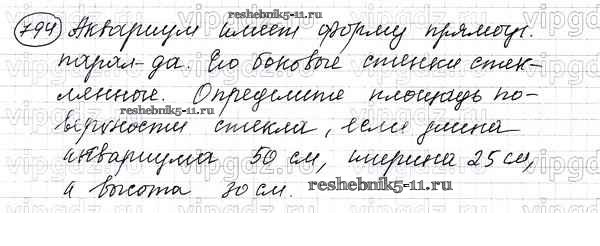 reshebnik5-11.ru
794 Аквариум имеет форму прямоуг.
парал-да. Его боковые стенки стек-
лянные. Определите площадь по-
reshebnik5-11.ru
верхности стекла, если длина
аквариума 50 см, ширина 25 см,
а высота 30 см. reshebnik5-11.ru